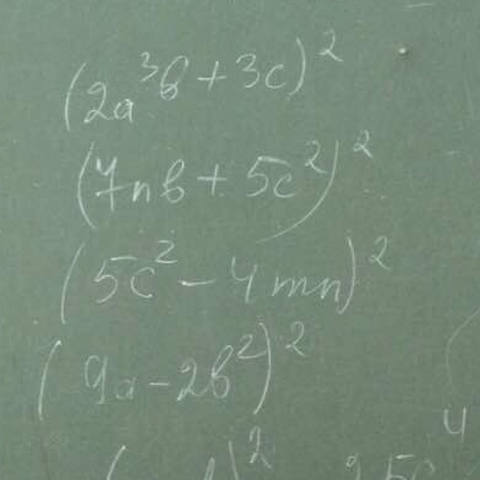 (2a³b + 3c)²
(7nb + 5c²)²
(5c² - 4mn)²
(9a - 2b²)²